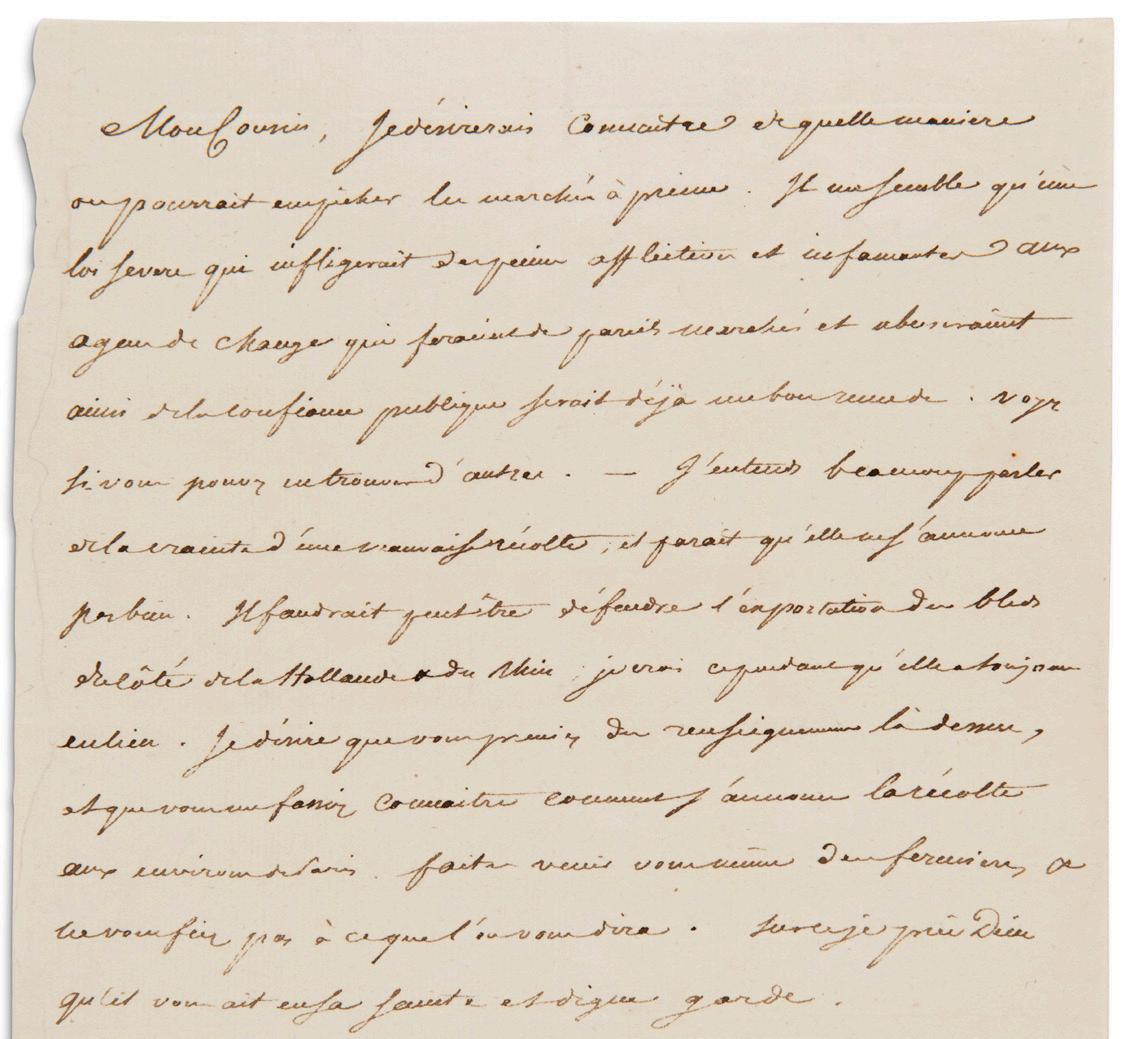 Mon Cousin, Je désirerais connaitre de quelle maniere
on pourrait empêcher les marchés à prime. Il me semble qu'une
loi severe qui infligerait des peines afflictives et infamantes aux
agens de change qui feraient de pareils marchés et abuseraient
ainsi de la confiance publique serait déjà un bon remede. Voyez
si vous pouvez en trouver d'autres. — J'entends beaucoup parler
de la crainte d'une mauvaise récolte, il parait qu'elle ne s'annonce
pas bien. Il faudrait peutêtre défendre l'exportation des bleds
du côté de la Hollande & du Rhin; je crois cependant qu'elle a toujours
eu lieu. Je désire que vous preniez des renseignemens là dessus,
et que vous me fassiez connaitre comment s'annonce la récolte
aux environs de Paris. Faites venir vous même des fermiers, &
ne vous fiez pas à ce que l'on vous dira. Sur ce je prie Dieu
qu'il vous ait en sa sainte et digne garde.